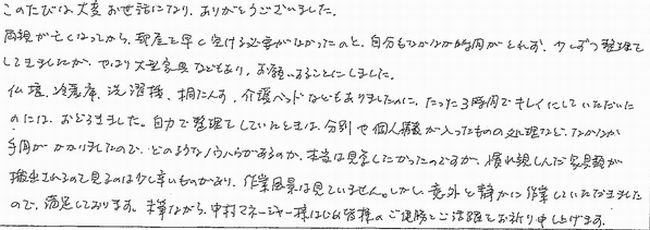 このたびは大変お世話になり、ありがとうございました。
両親が亡くなってから、部屋を早く空ける必要がなかったのと、自分もなかなか時間がとれず、少しずつ整理を
してきましたが、やはり大型家具などもあり、お願いすることにしました。
仏壇、冷蔵庫、洗濯機、桐たんす、介護ベッドなどもありましたのに、たった3時間でキレイにしていただいた
のには、おどろきました。自力で整理をしていたときは、分別や個人情報が入ったものの処理など、なかなか
手間がかかりましたので、どのようなノウハウがあるのか、本当は見学したかったのですが、慣れ親しんだ家具類が
搬出されるのを見るのは少し辛いものがあり、作業風景は見ていません。しかし意外と静かに作業していただきました
ので、満足しております。末筆ながら、中村マネージャー様はじめ皆様のご健勝とご活躍をお祈り申し上げます。